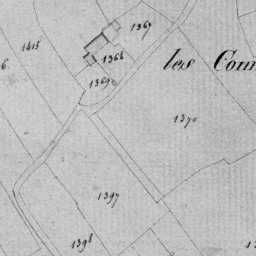 1367
1415
1368
les Com
6.
1369
1370
1397
1398